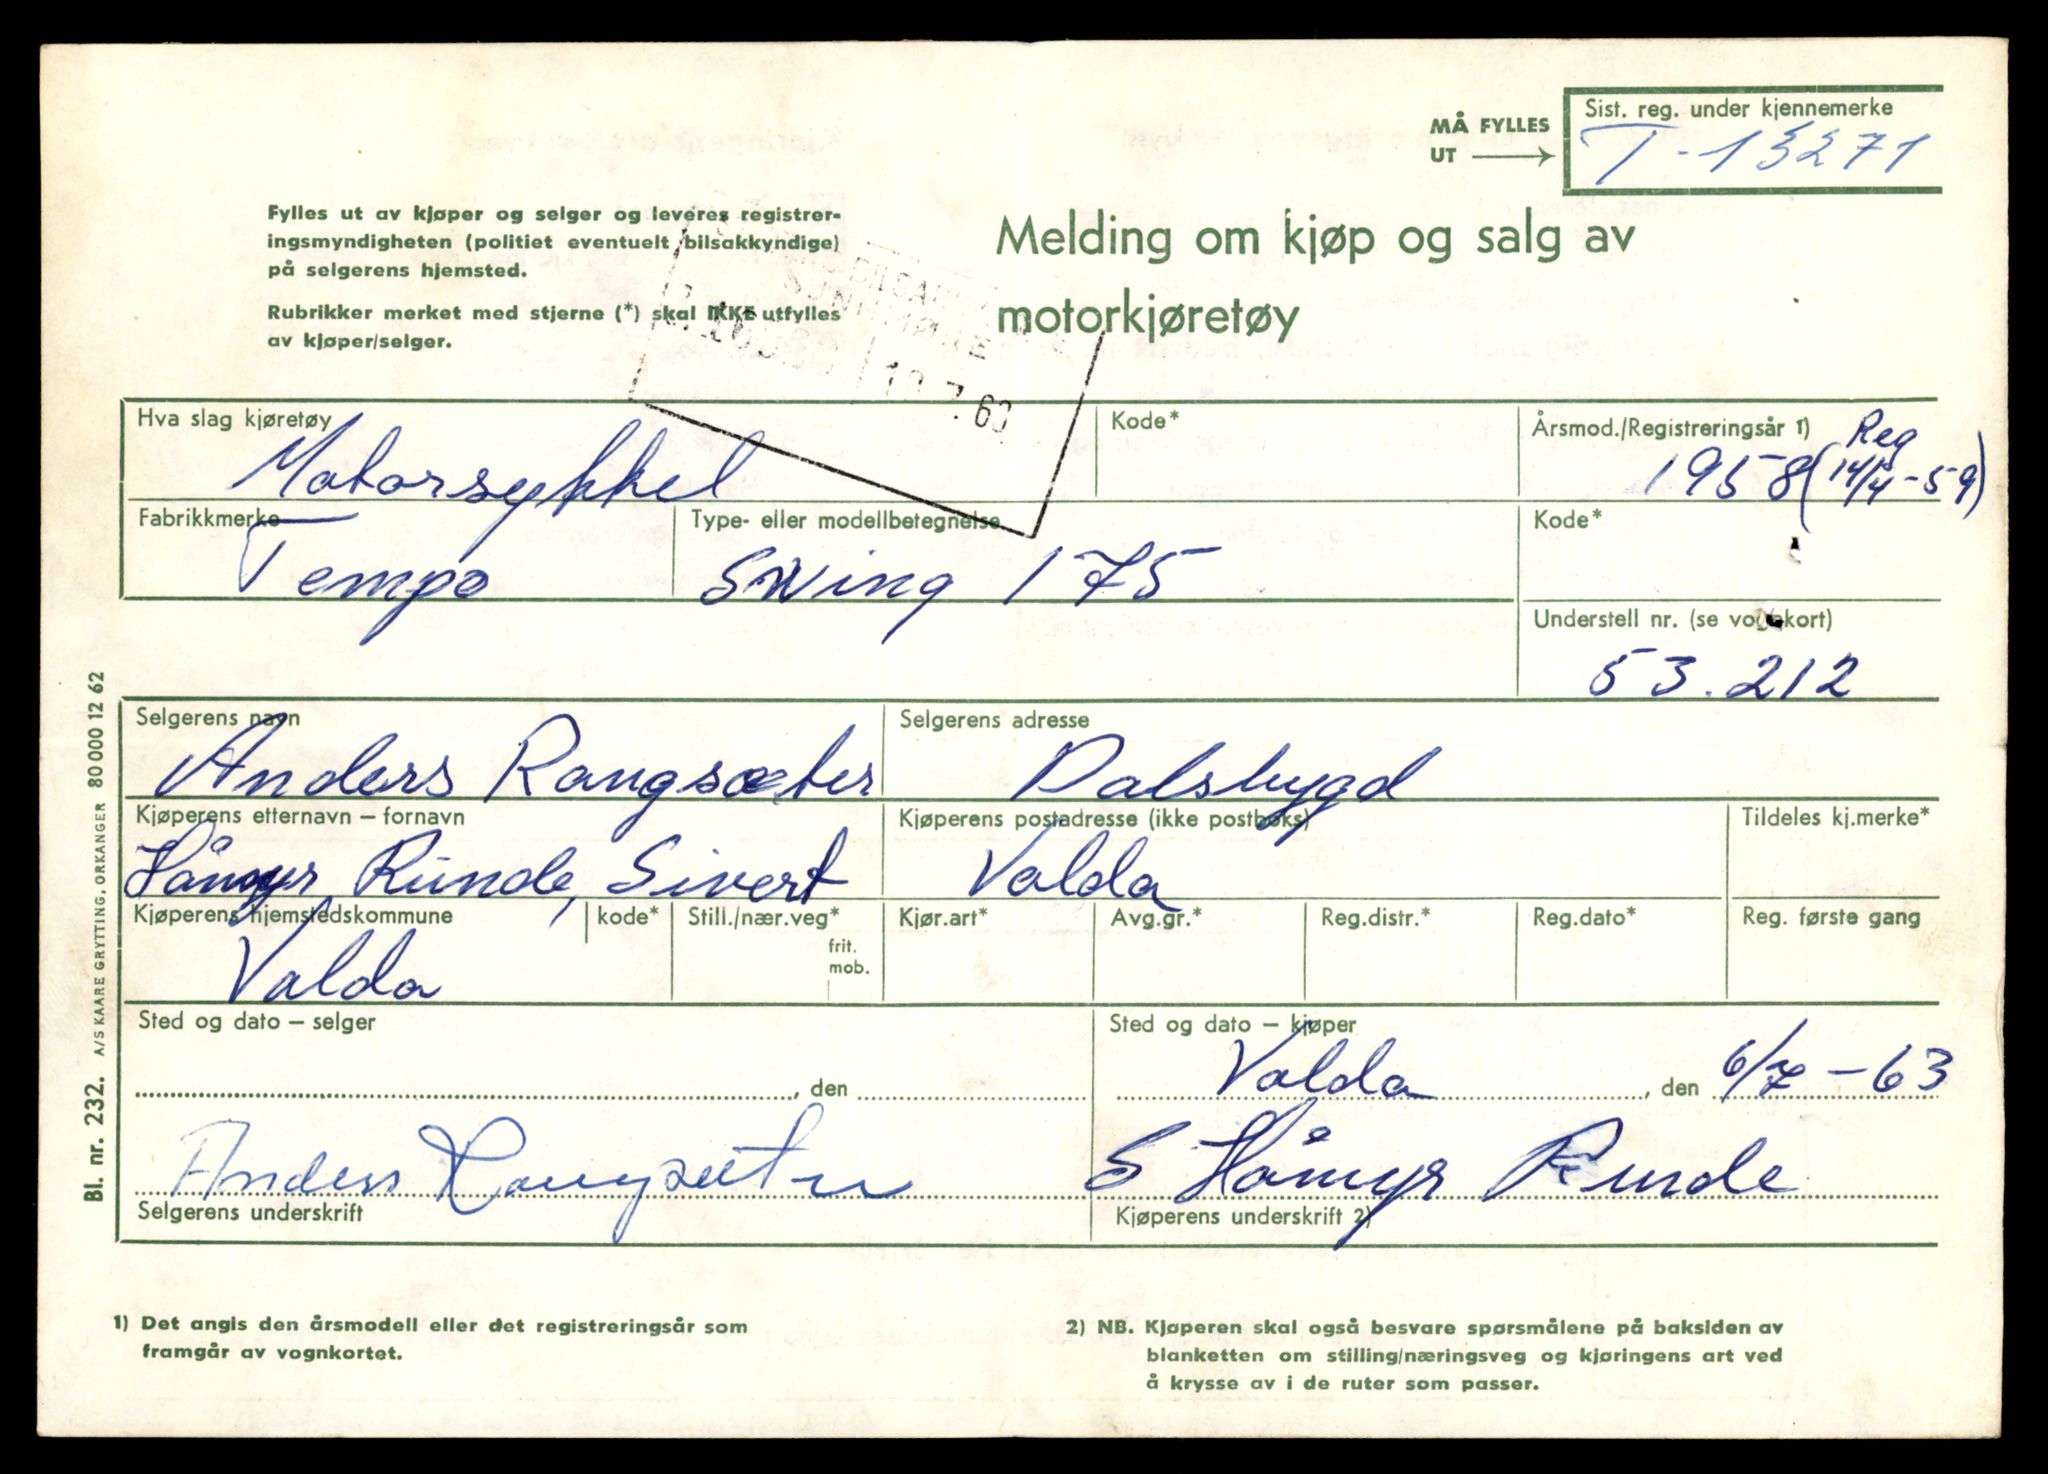 MÅ FYLLES UT
Sist. reg. under kjennemerke
T-13271
Fylles ut av kjøper og selger og leveres registrer-
ingsmyndigheten (politiet eventuelt bilsakkyndige)
på selgerens hjemsted.
Rubrikker merket med stjerne (*) skal IKKE utfylles
av kjøper/selger.
Melding om kjøp og salg av
motorkjøretøy
Hva slag kjøretøy
Motorsykkel
Kode*
Årsmod./Registreringsår 1)
1958 (Reg 14/4-59)
Fabrikkmerke
Tempo
Type- eller modellbetegnelse
Swing 175
Kode*
Understell nr. (se vognkort)
53.212
Selgerens navn
Anders Rangsæter
Selgerens adresse
Dalsbygd
Kjøperens etternavn – fornavn
Håmyr Runde, Sivert
Kjøperens postadresse (ikke postboks)
Volda
Tildeles kj.merke*
Kjøperens hjemstedskommune
Volda
kode*
Still./nær.veg*
frit.
mob.
Kjør.art*
Avg.gr.*
Reg.distr.*
Reg.dato*
Reg. første gang
Sted og dato – selger
, den
Sted og dato – kjøper
Volda, den 6/7-63
Anders Rangsæter
Selgerens underskrift
S Håmyr Runde
Kjøperens underskrift 2)
1) Det angis den årsmodell eller det registreringsår som
framgår av vognkortet.
2) NB. Kjøperen skal også besvare spørsmålene på baksiden av
blanketten om stilling/næringsveg og kjøringens art ved
å krysse av i de ruter som passer.
Bl. nr. 232. A/S KAARE GRYTTING, ORKANGER 80 000 12 62